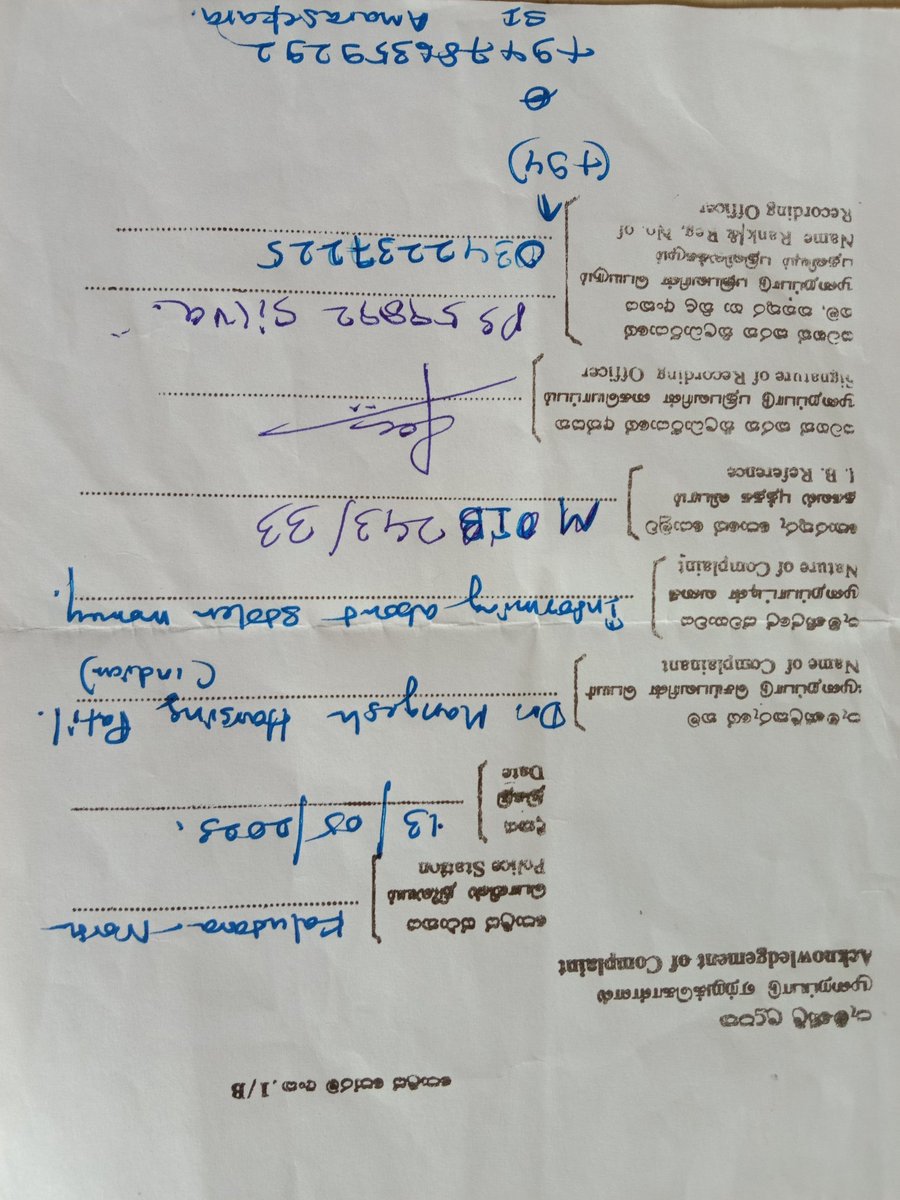 පොලිස් පෝරම් අංක. 1/B
පැමිණිලි ලදුපත
முறைப்பாடு ஏற்றுக்கொள்ளல்
Acknowledgement of Complaint
පොලිස් ස්ථානය
பொலிஸ் நிலையம்
Police Station
Kalutara-North
දිනය
திகதி
Date
13/05/2025.
පැමිණිලිකරුගේ නම
முறைப்பாடு செய்பவரின் பெயர்
Name of Complainant
Dr. Mangesh Harsing Patil.
(indian)
පැමිණිල්ලේ ස්වභාවය
முறைப்பாட்டின் வகை
Nature of Complaint
Informing about stolen money.
තොරතුරු පොතේ යොමුව
தகவல் புத்தக விபரம்
I. B. Reference
M OIB 243/33
සටහන් කරන නිලධාරියාගේ අත්සන
முறைப்பாடு பதிபவரின் கையொப்பம்
Signature of Recording Officer
සටහන් කරන නිලධාරියාගේ
නම, තනතුර හා රෙජි අංකය
முறைப்பாடு பதிபவரின் பெயரும்
பதவியும் பதிவிலக்கமும்
Name Rank & Reg, No. of
Recording Officer
PS 59892 Silva.
0342237225
(+94)
+94786359292
SI
Amarasekara.